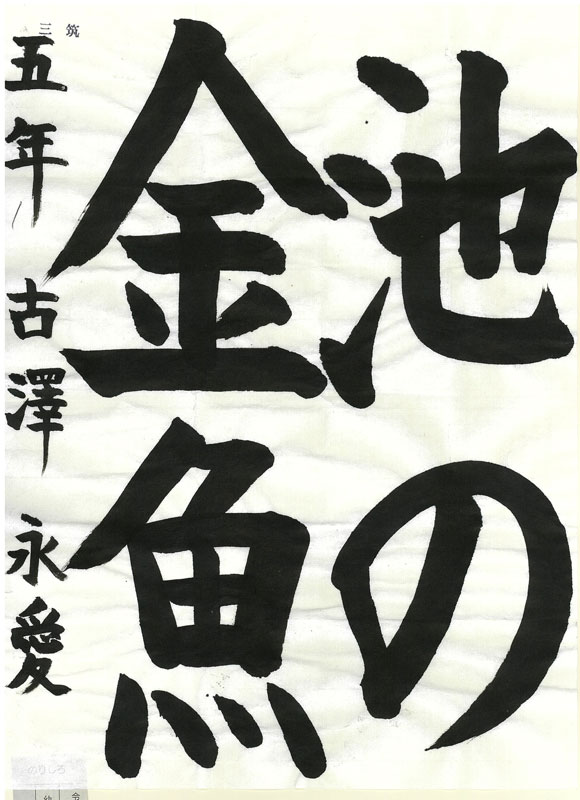 池の
金魚
五年 古澤 永愛
筑
三
のりしろ